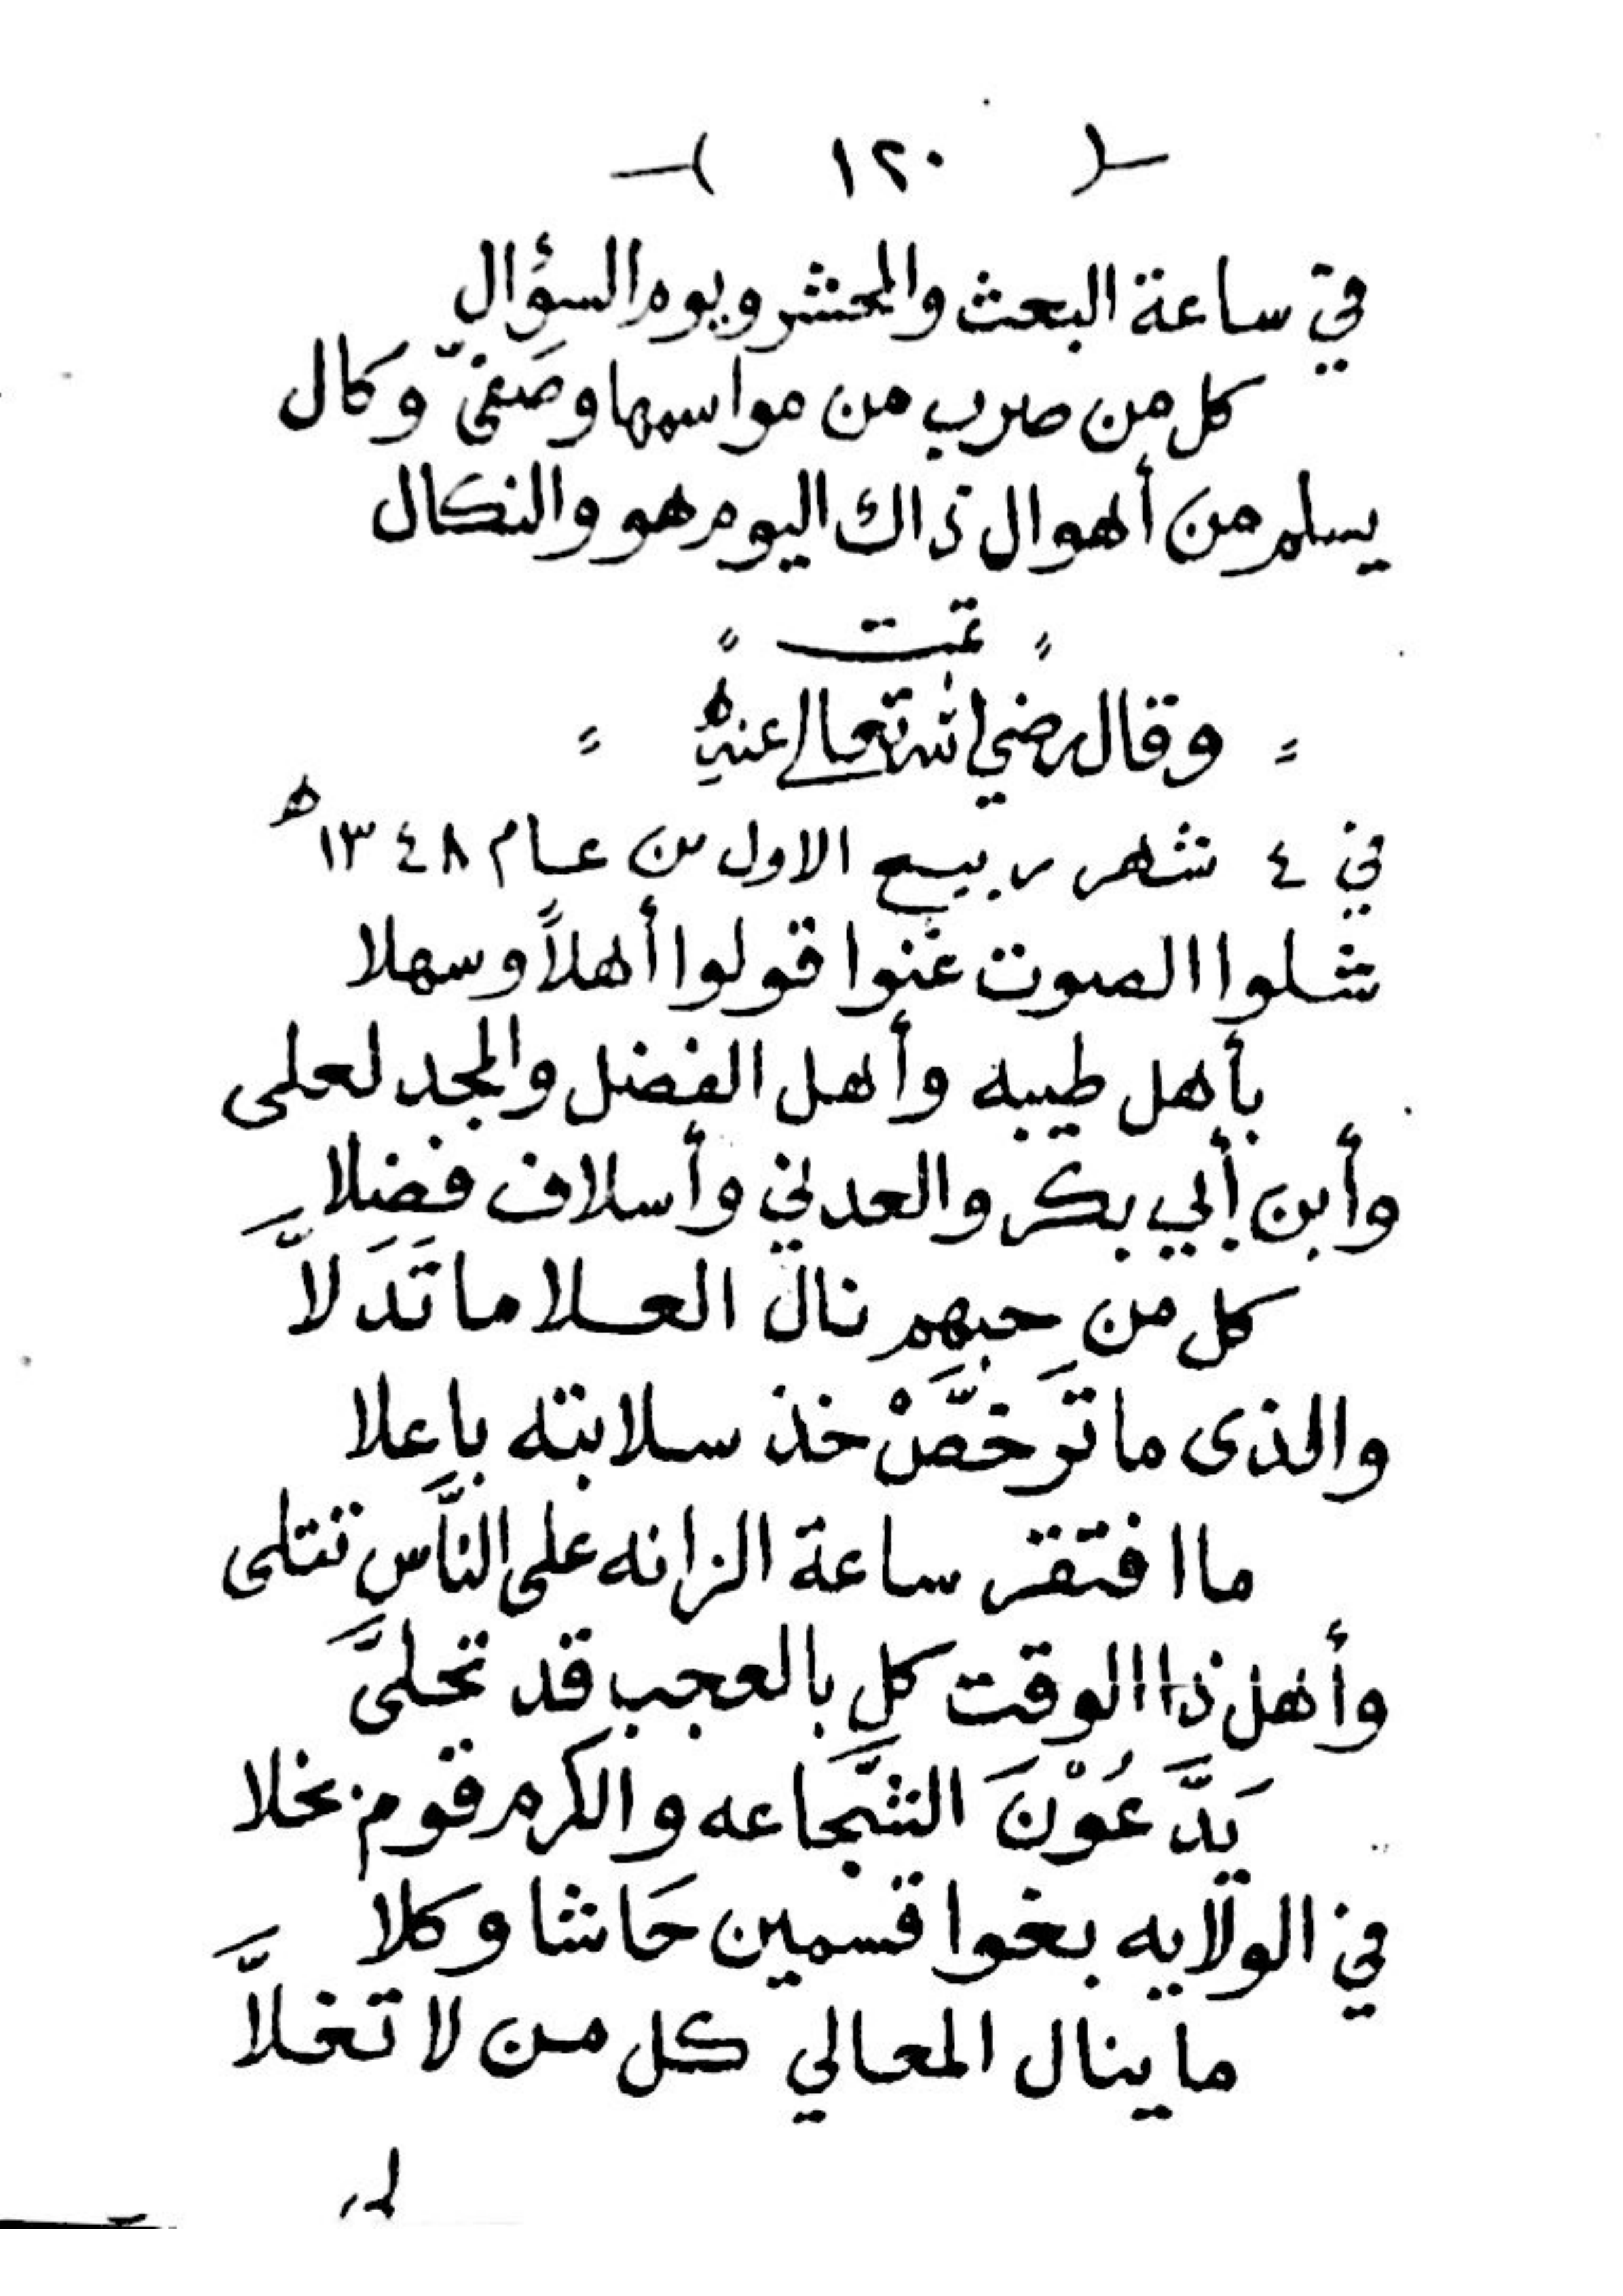 -( ١٢٠ )-
في ساعة البعث والمحشر ويوم السؤال
كل من صرب من مواسمها وصَفىّ وكال
يسلم من أهوال ذاك اليوم هو والنكال
" تمت "
= وقال رضي الله تعالى عنه =
في ٤ شهر ربيع الاول من عام ١٣٤٨ ه
شلوا الصوت غنوا قولوا أهلاً وسهلا
بأهل طيبه وأهل الفضل والمجد لعلى
وأبن أبي بكر والعدني وأسلاف فضلا
كل من حبهم نال العلا ما تَدَلاَّ
والذى ما تَرخَّصْ خذ سلابته باعلا
ما افتقر ساعة الزانه على النَّاس تتلى
وأهل ذا الوقت كل بالعجب قد تحلىَّ
يَدَّعُوْنَ الشَّجاعه والكرم قوم بخلا
في الولايه بغوا قسمين حَاشا وكلا
ما ينال المعالي كل من لا تغلاَّ